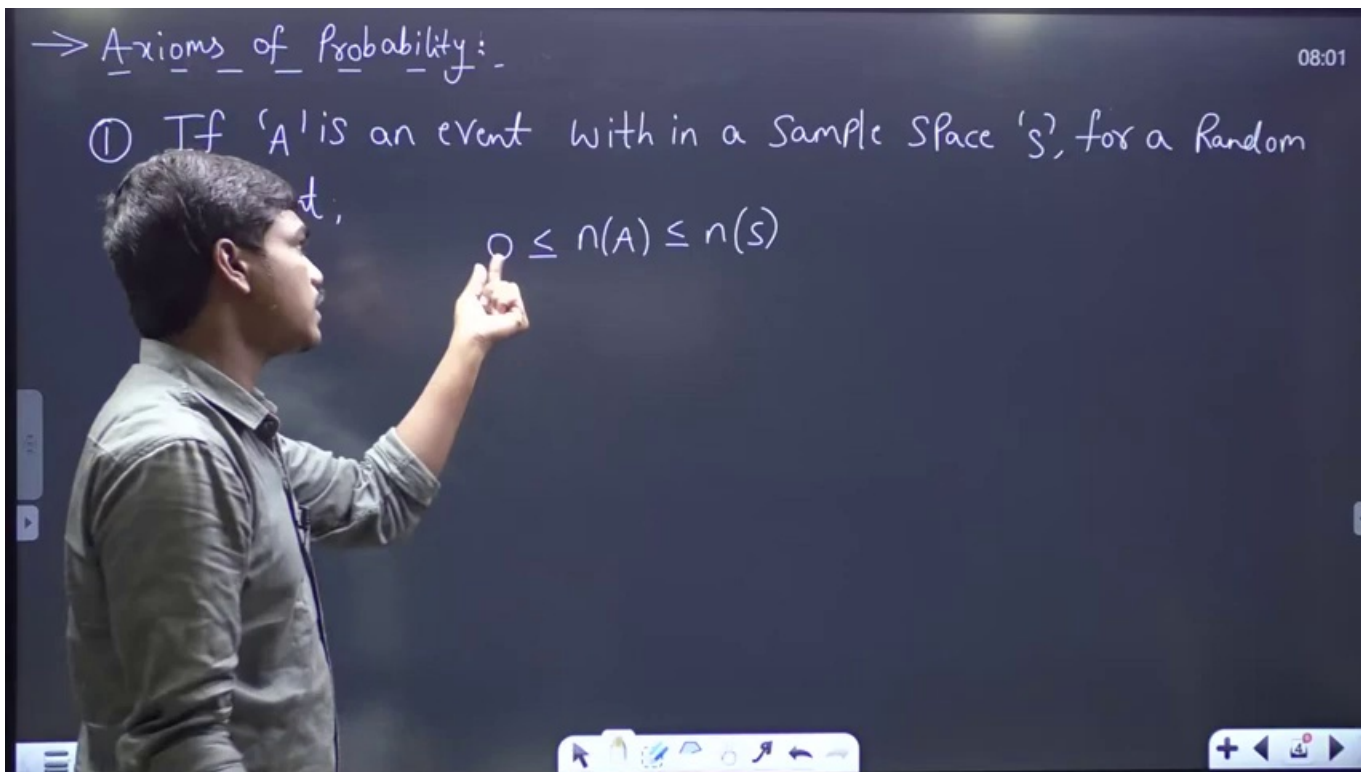 → Axioms of Probability:-
08:01
① If 'A' is an event with in a Sample Space 'S', for a Random
0 ≤ n(A) ≤ n(S)
4